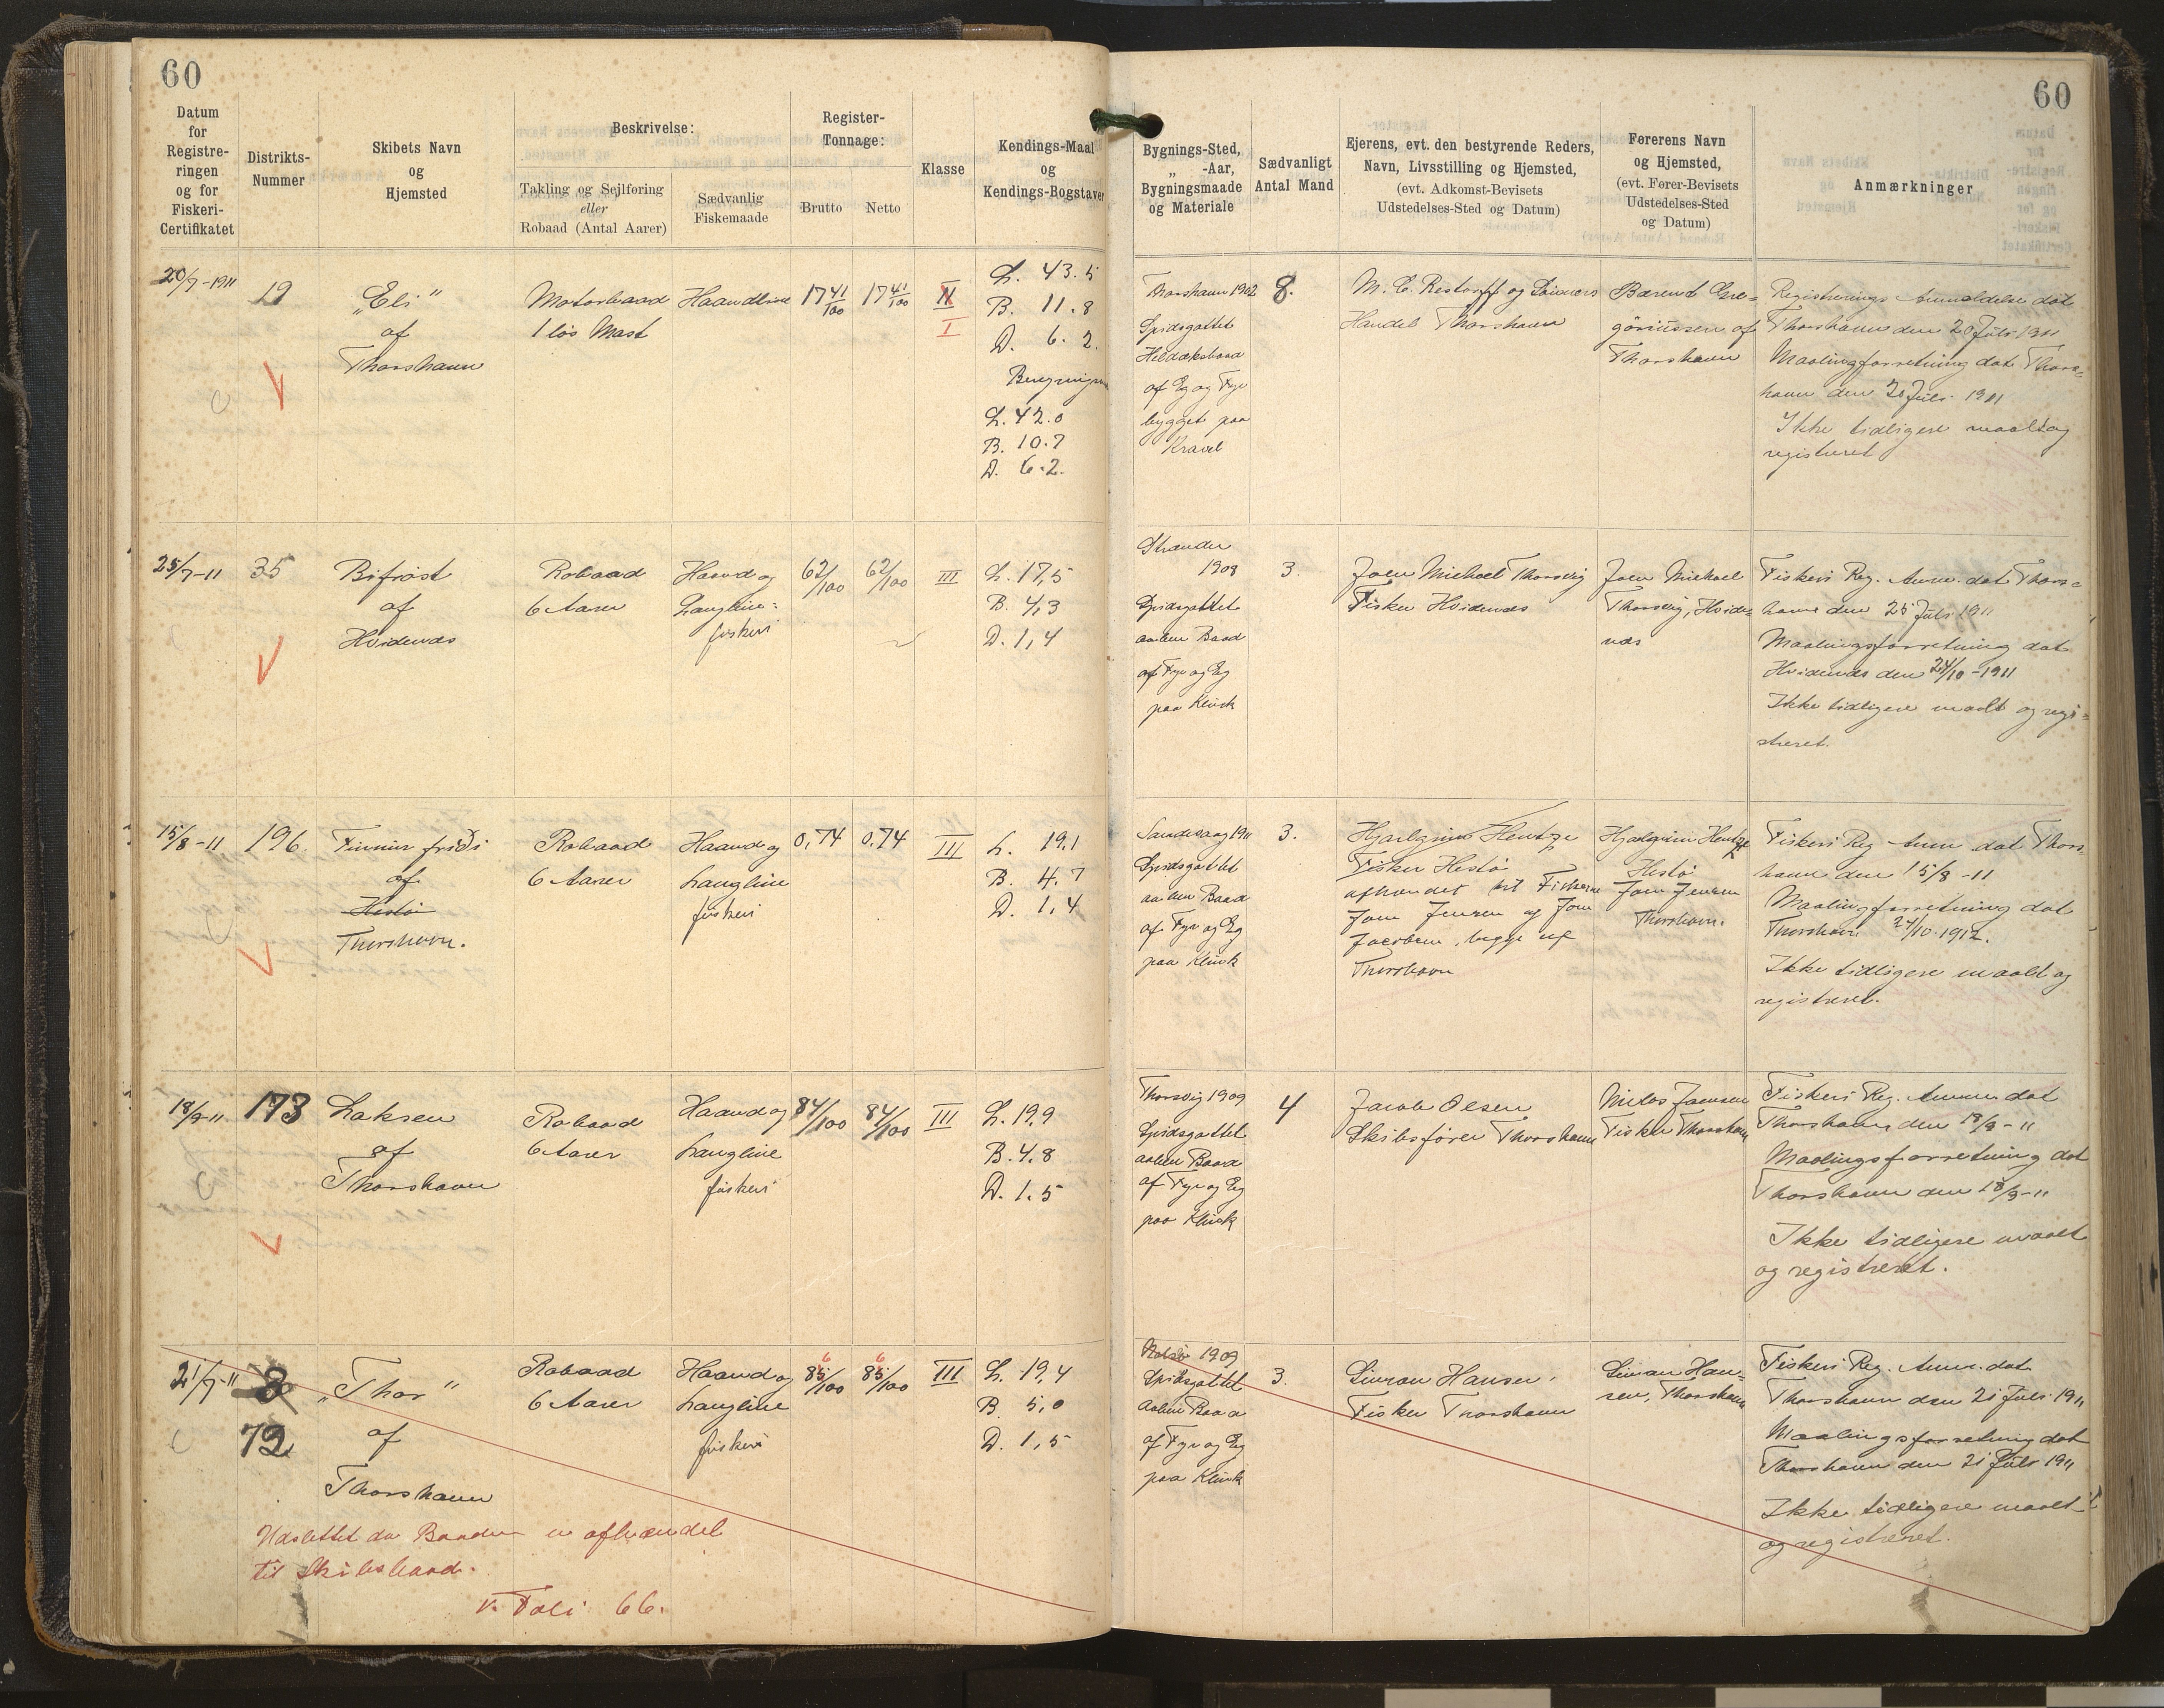 60
60
Datum
for
Registre-
ringen
og for
Fiskeri-
Certifikatet
Distrikts-
Nummer
Skibets Navn
og
Hjemsted
Beskrivelse:
Takling og Sejlføring
eller
Robaad (Antal Aarer)
Sædvanlig
Fiskemaade
Register-
Tonnage:
Brutto
Netto
Klasse
Kendings-Maal
og
Kendings-Bogstaver
Bygnings-Sted,
„ -Aar,
Bygningsmaade
og Materiale
Sædvanligt
Antal Mand
Ejerens, evt. den bestyrende Reders,
Navn, Livsstilling og Hjemsted,
(evt. Adkomst-Bevisets
Udstedelses-Sted og Datum)
Førerens Navn
og Hjemsted,
(evt. Fører-Bevisets
Udstedelses-Sted
og Datum)
Anmærkninger
20/7-1911
19
„Eli"
af
Thorshavn
Motorbaad
1 løs Mast
Haandline
17 41/100
17 41/100
II
I
L. 43.5
B. 11.8
D. 6.2.
L. 42.0
B. 10.7
D. 6.2.
Thorshavn 1902
Spidsgattet
Heldæksbaad
af Eg og Fyr
bygget paa
Kravel
8.
M. C. Restorff og Sønners
Handel Thorshavn
Barent Gre-
göriussen af
Thorshavn
Registrerings Anmeldelse dat
Thorshavn den 20 Juli 1911
Maalingsforretning dat Thors-
havn den 20 Juli 1911
Ikke tidligere maalt og
registreret
25/7-11
35
Bifrøst
af
Hvidenæs
Robaad
6 Aarer
Haand og
Langline-
fiskeri
62/100
62/100
III
L. 17,5
B. 4,3
D. 1,4
Strander
1908
Spidsgattet
aaben Baad
af Fyr og Eg
paa Klink
3.
Joen Michael Thorsvig
Fisker Hvidenæs
Joen Michael
Thorsvig, Hvide-
næs
Fiskeri Reg. Anm. dat Thors-
havn den 25 Juli 1911
Maalingsforretning dat
Hvidenæs den 24/10-1911
Ikke tidligere maalt og regi-
streret.
15/8-11
196.
Finnur fríði
af
Hestø
Thorshavn.
Robaad
6 Aarer
Haand og
Langline
fiskeri
0,74
0,74
III
L. 19,1
B. 4,7
D. 1,4
Sandevaag 1911
Spidsgattet
aaben Baad
af Fyr og Eg
paa Klink
3.
Hjalgrim Hentze
Fisker Hestø
afhændet til Fiskerne
Joen Jensen og Joen
Jacobsen, begge af
Thorshavn
Hjalgrim Hentze
Hestø
Joen Jensen
Thorshavn.
Fiskeri Reg Anm dat Thors-
havn den 15/8-11
Maalingsforretning dat
Thorshavn 24/10.1912.
Ikke tidligere maalt og
registreret.
18/9-11
173
Laksen
af
Thorshavn
Robaad
6 Aarer
Haand og
Langline
fiskeri
84/100
84/100
III
L. 19,9
B. 4,8
D. 1,5
Thorsvig 1909
Spidsgattet
aaben Baad
af Fyr og Eg
paa Klink
4
Jacob Olsen
Skibsfører Thorshavn
Niclas Joensen
Fisker Thorshavn
Fiskeri Reg. Anm dat
Thorshavn den 18/9-11
Maalingsforretning dat
Thorshavn den 18/9-11
Ikke tidligere maalt
og registreret.
21/7-11
8
72
„Thor"
af
Thorshavn
Robaad
6 Aarer
Haand og
Langline
fiskeri
6
85/100
6
85/100
III
L. 19,4
B. 5,0
D. 1,5
1909
Spidsgattet
Aaben Baad
af Fyr og Eg
paa Klink
3.
Simon Hansen,
Fisker Thorshavn
Simon Han-
sen, Thorshavn
Fiskeri Reg. Anm. dat
Thorshavn den 21 Juli 1911
Maalingsforretning dat
Thorshavn den 21 Juli 1911
Ikke tidligere maalt
og registreret.
Udslettet da Baaden er afhændet
til Skibsbaad.
v. Foli 66.